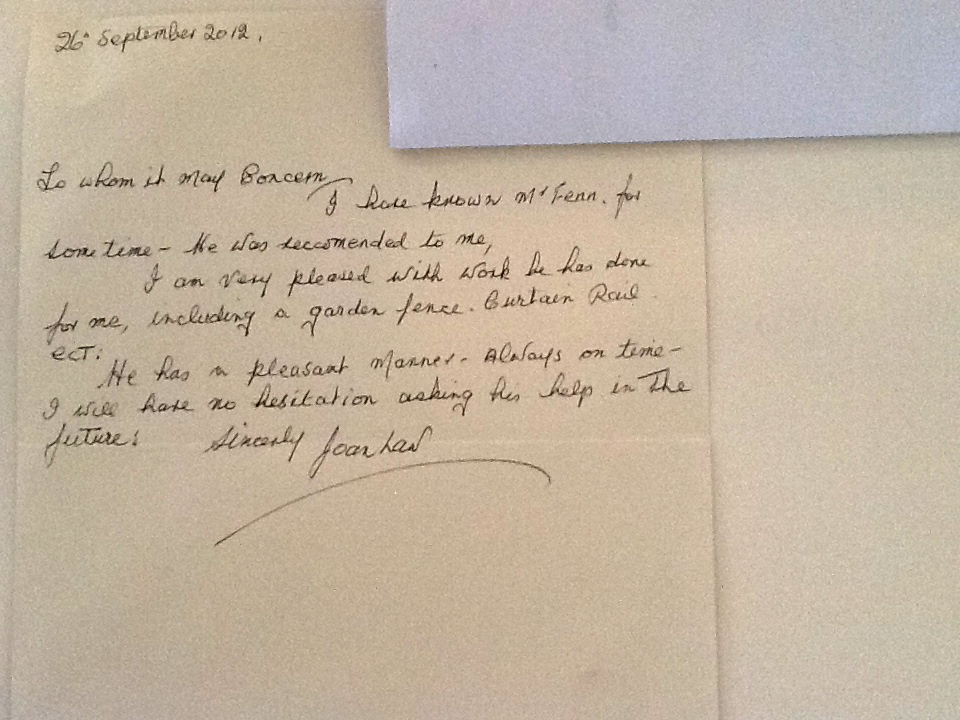 26th September 2012.
To whom it may Concern
I have known Mr Fenn. for
some time - He was reccomended to me,
I am very pleased with work he has done
for me, including a garden fence. Curtain Rail
ect:
He has a pleasant manner - Always on time -
I will have no hesitation asking his help in the
future: Sincerly Joan Law